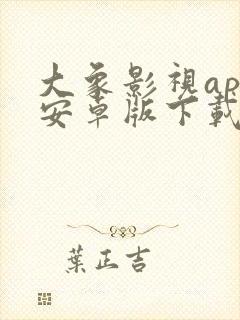 大象影視ap
安卓版下載
葉正吉